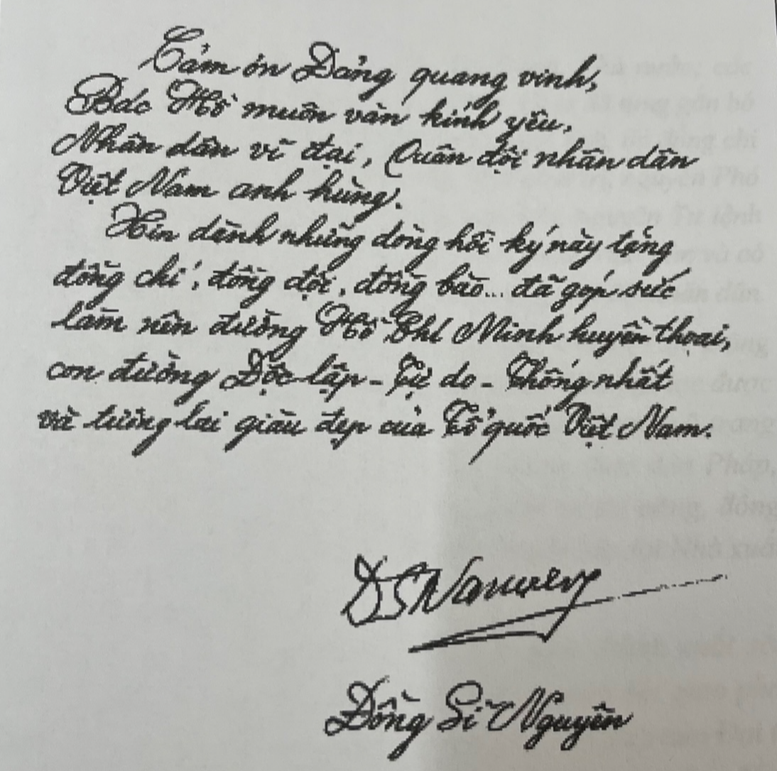 Cảm ơn Đảng quang vinh,
Bác Hồ muôn vàn kính yêu,
Nhân dân vĩ đại, Quân đội nhân dân
Việt Nam anh hùng.
Xin dành những dòng hồi ký này tặng
đồng chí, đồng đội, đồng bào... đã góp sức
làm nên đường Hồ Chí Minh huyền thoại,
con đường Độc lập - Tự do - Thống nhất
và tương lai giàu đẹp của Tổ quốc Việt Nam.
ĐSNguyên
Đồng Sĩ Nguyên